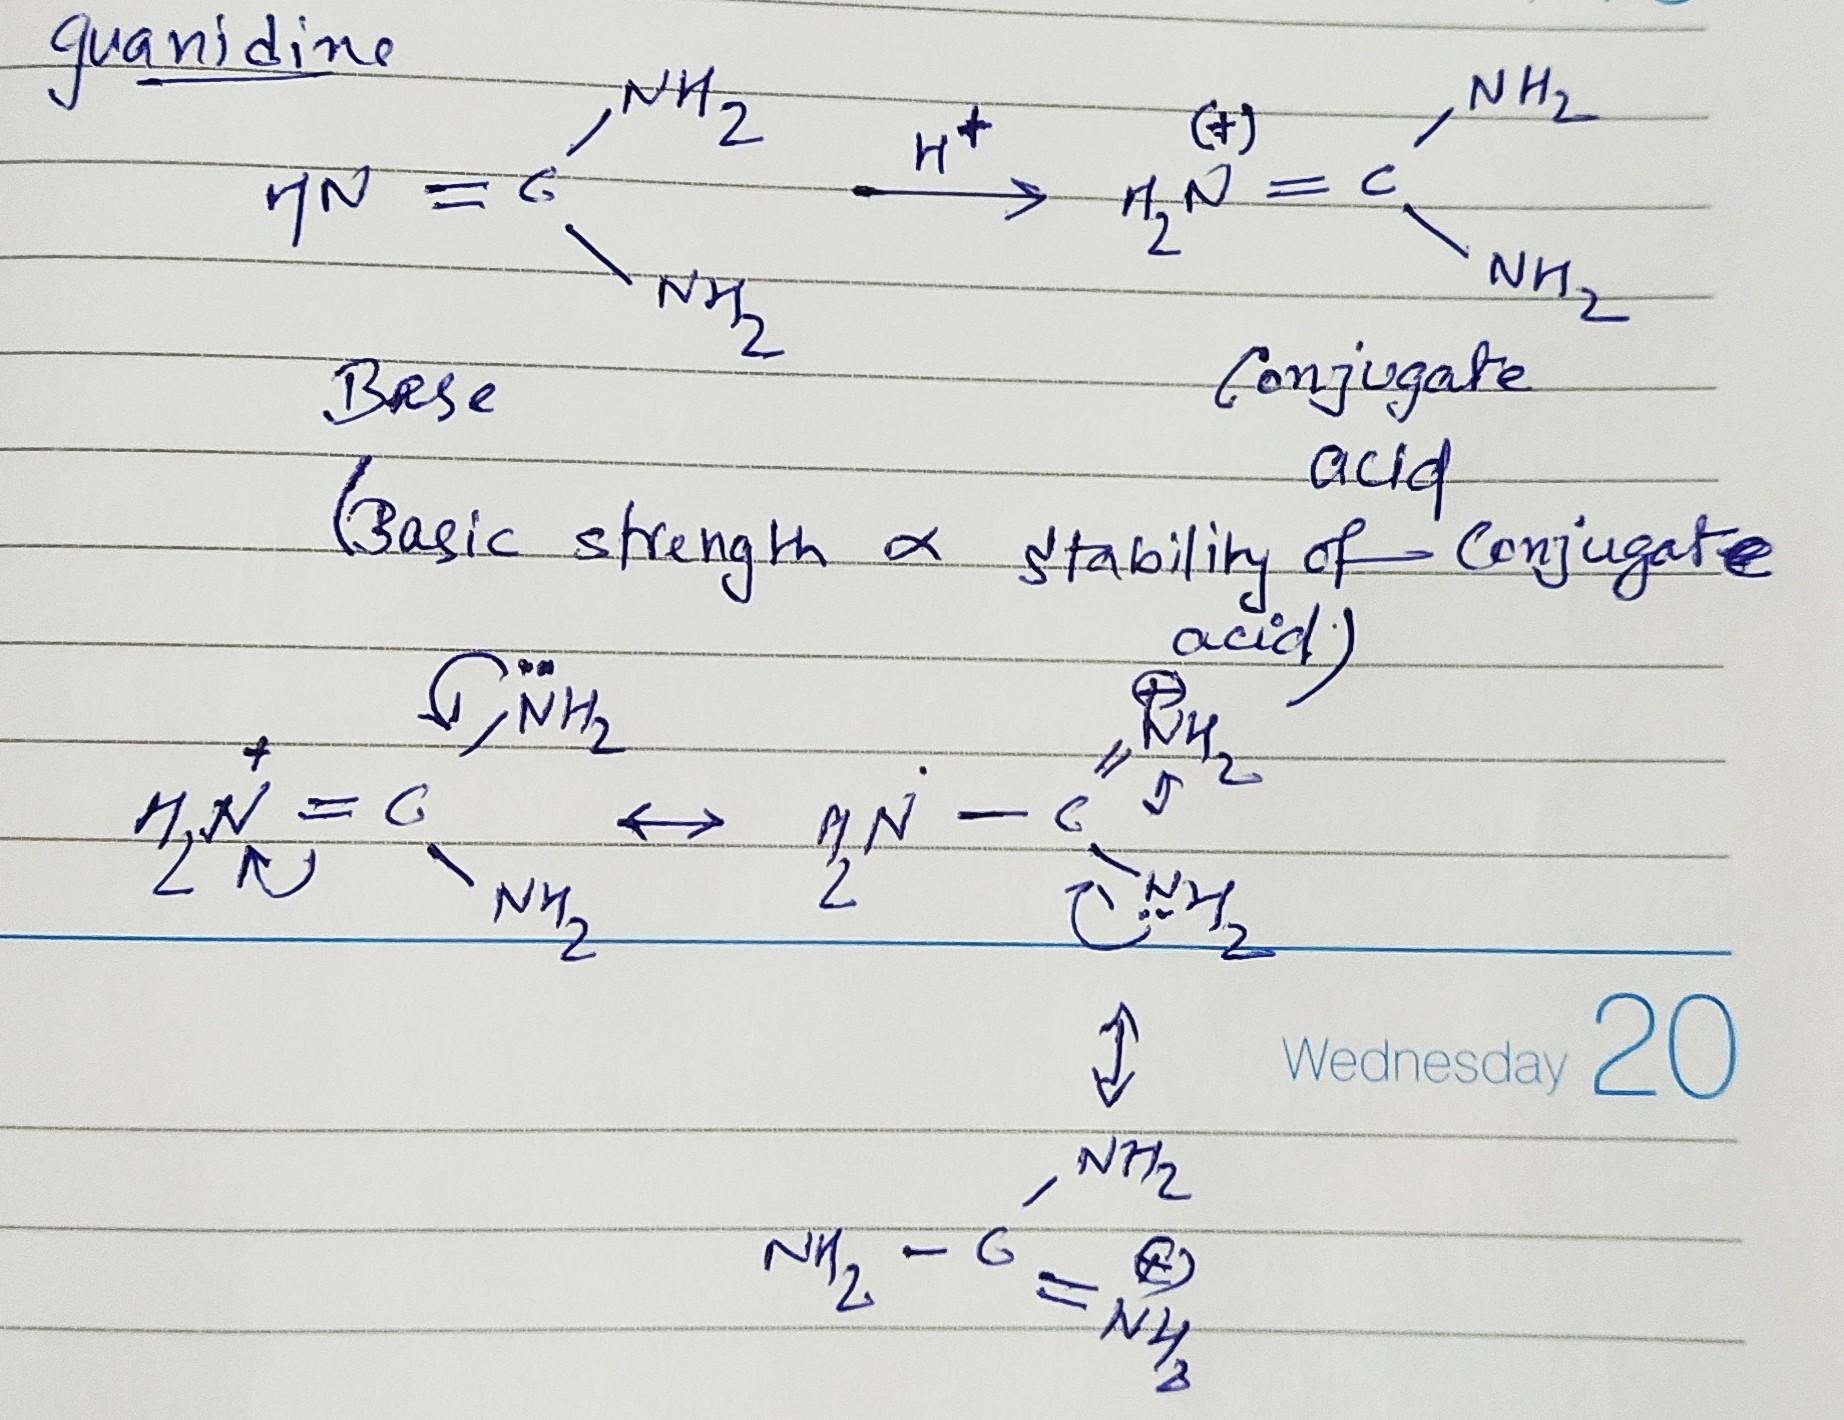 guanidine
NH2
HN = C
NH2
H+
(+)
H2N = C
NH2
NH2
Base
Conjugate
acid
(Basic strength ∝ stability of Conjugate
acid)
NH2
+
H2N = C
NH2
↔
⊕
NH2
H2N — C
NH2
↕
Wednesday 20
NH2
NH2 - C
⊕
= NH3